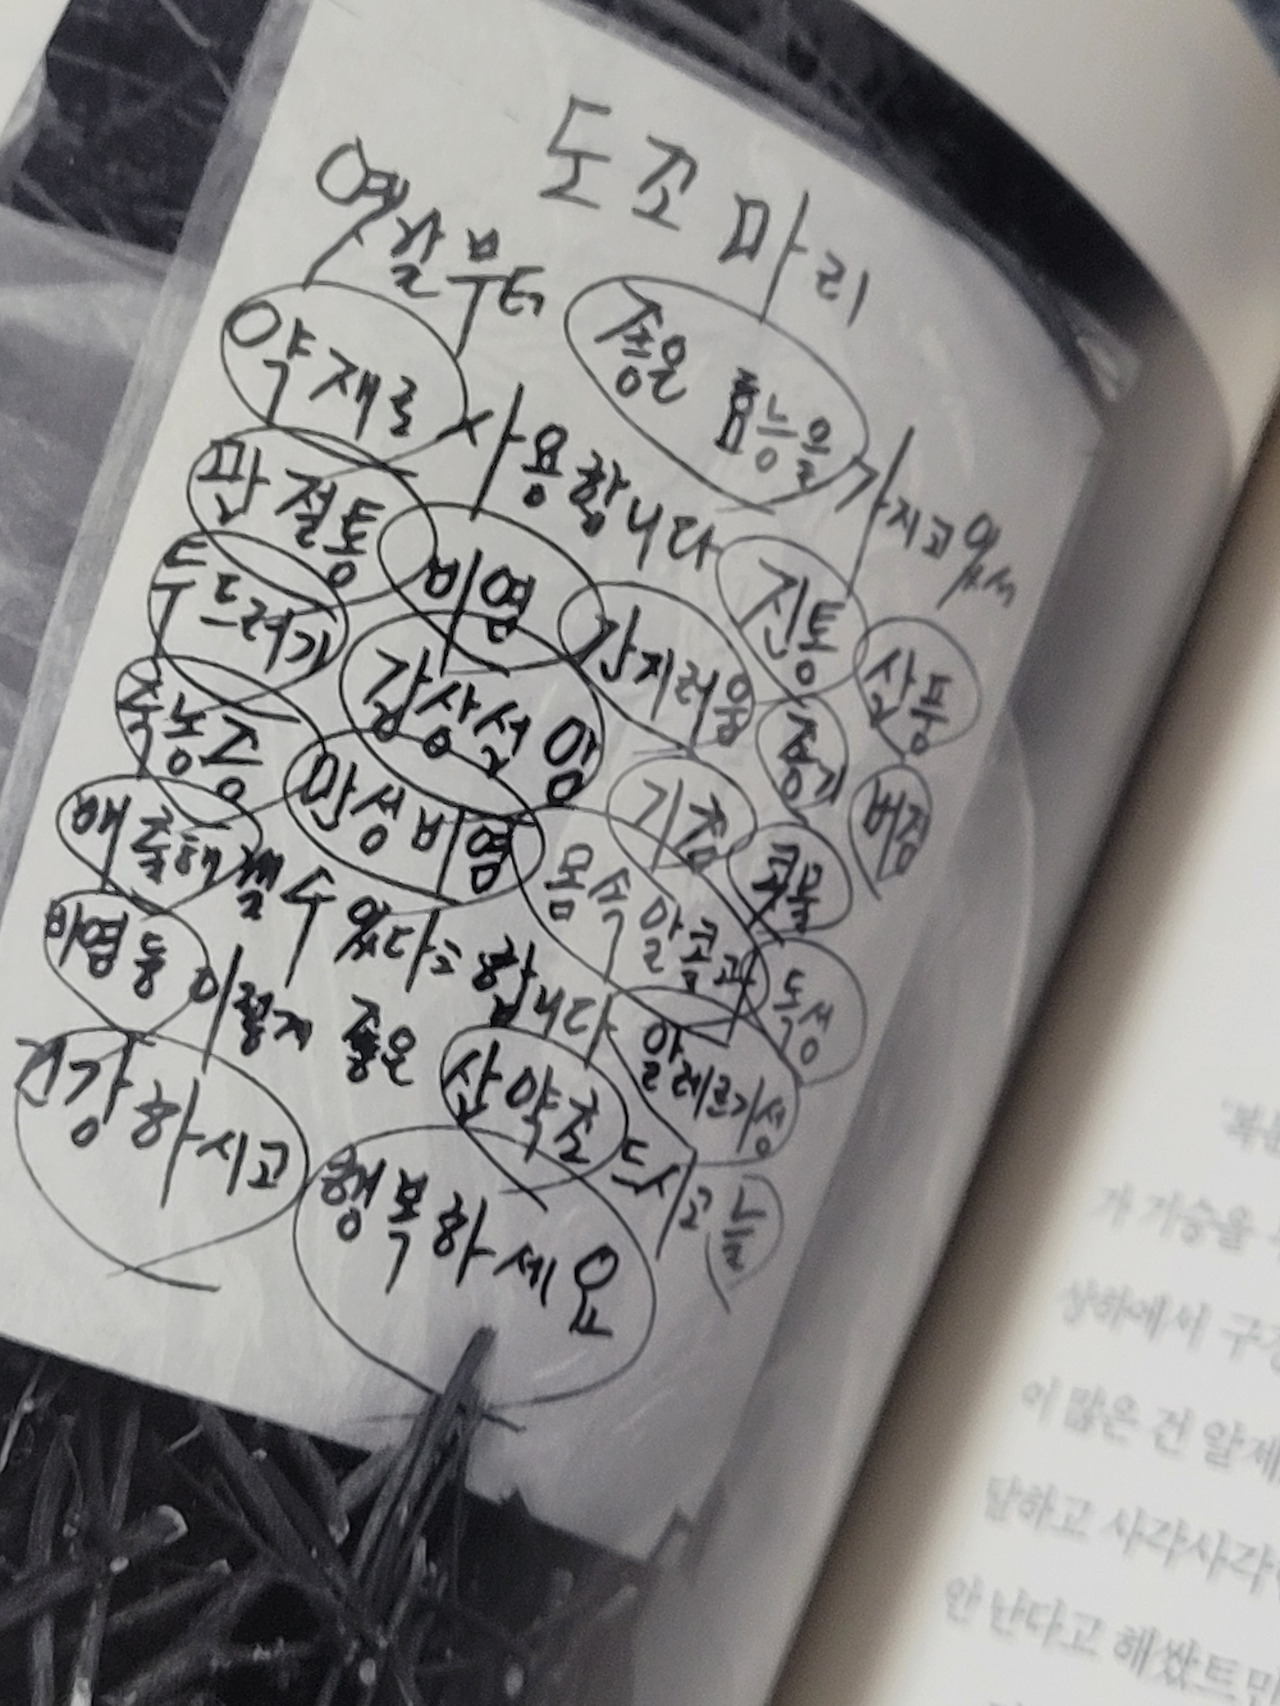 도꼬마리
옛날부터 좋은 효능을 가지고있서
약재로 사용합니다 진통 산풍
관절통 비염 간지러움 종기 버짐
두드러기 갑상선 암 기침 콧물
축농증 만성비염 몸속 알콜과 독성
배출해 낼수 있다고 합니다 알레르기성
비염 등 이렇게 좋은 산약초 드시고 늘
건강하시고 행복하세요
가 가슴을
상하에서
이 많은 건 알게
달하고 사각사각
안 난다고 해쌌트